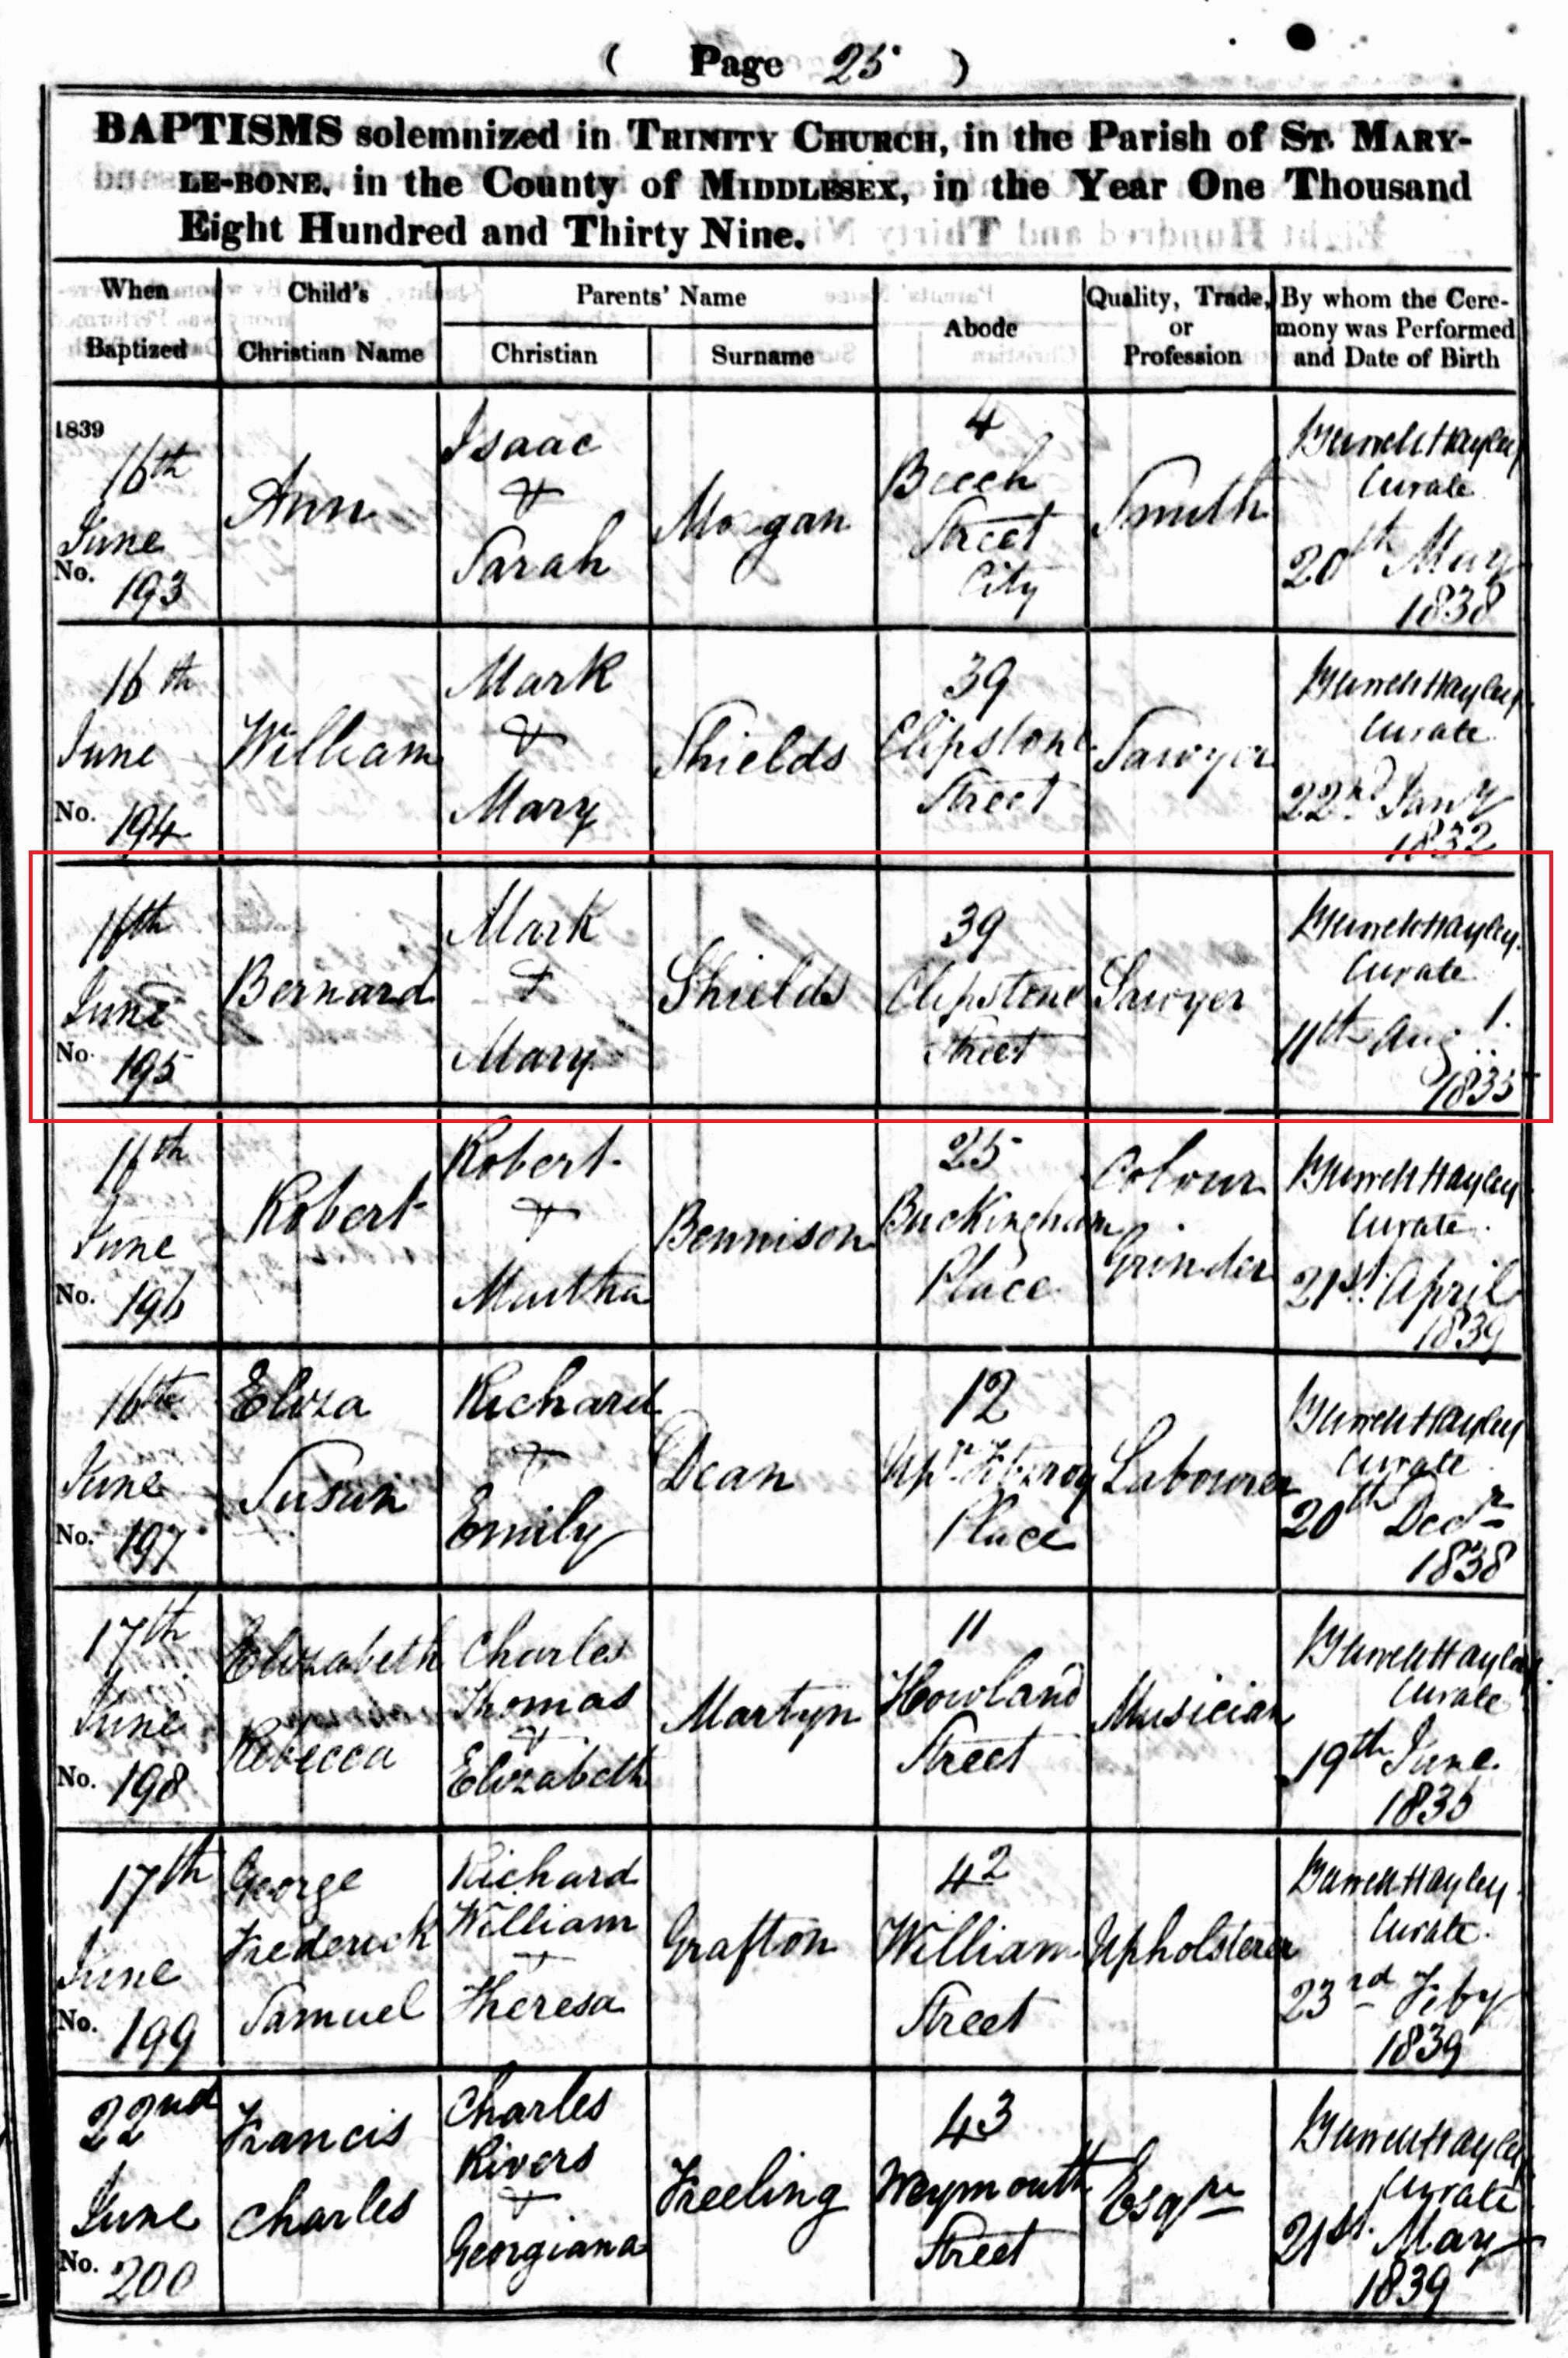 ( Page 25 )
BAPTISMS solemnized in TRINITY CHURCH, in the Parish of ST. MARY-
LE-BONE, in the County of MIDDLESEX, in the Year One Thousand
Eight Hundred and Thirty Nine.
When Baptized
Child's Christian Name
Parents' Name
Christian
Surname
Abode
Quality, Trade, or Profession
By whom the Ceremony was Performed and Date of Birth
1839
16th
June
No. 193
Ann
Isaac
&
Sarah
Morgan
4
Beech
Street
City
Smith
Burrell Hayley
Curate
20th May
1838
16th
June
No. 194
William
Mark
&
Mary
Shields
39
Clipstone
Street
Sawyer
Burrell Hayley
Curate
22nd Jany
1832
16th
June
No. 195
Bernard
Mark
&
Mary
Shields
39
Clipstone
Street
Sawyer
Burrell Hayley
Curate
11th Aug
1835
16th
June
No. 196
Robert
Robert
&
Martha
Bennison
25
Buckingham
Place
Colour
Grinder
Burrell Hayley
Curate
21st April
1839
16th
June
No. 197
Eliza
Susan
Richard
&
Emily
Dean
12
Upr Fitzroy
Place
Labourer
Burrell Hayley
Curate
20th Decr
1838
17th
June
No. 198
Elizabeth
Rebecca
Charles
Thomas
&
Elizabeth
Martyn
11
Howland
Street
Musician
Burrell Hayley
Curate
19th June
1836
17th
June
No. 199
George
Frederick
Samuel
Richard
William
&
Theresa
Grafton
42
William
Street
Upholsterer
Burrell Hayley
Curate
23rd Feby
1839
22nd
June
No. 200
Francis
Charles
Charles
Rivers
&
Georgiana
Freeling
43
Weymouth
Street
Esqre
Burrell Hayley
Curate
21st May
1839